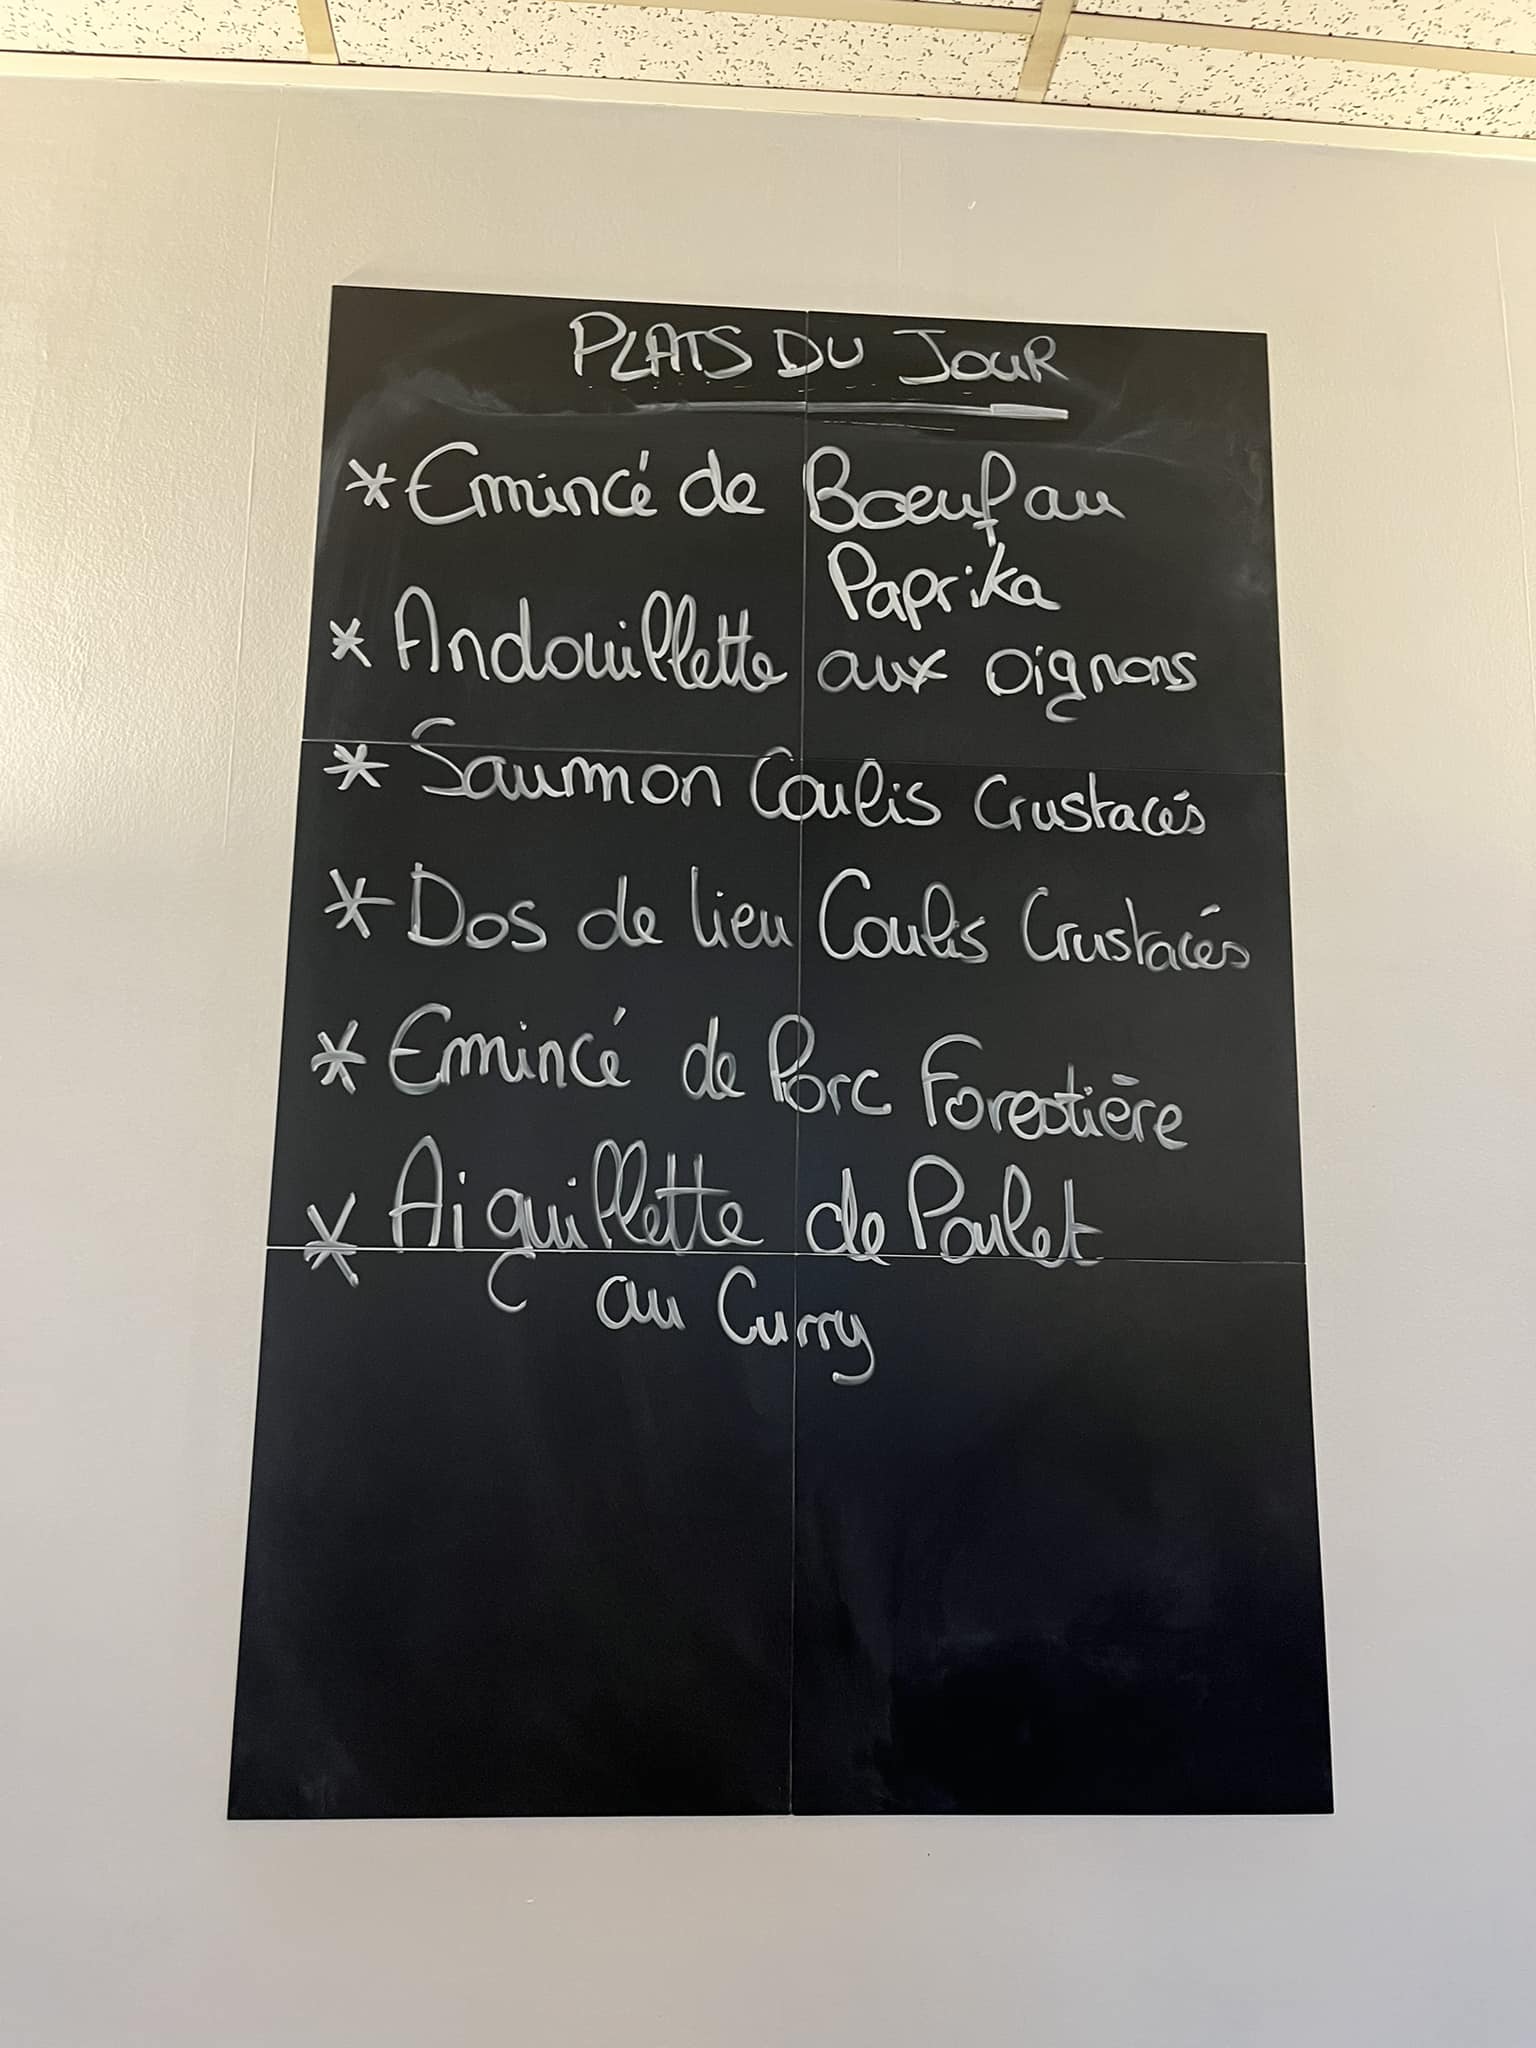 PLATS DU JOUR
* Emincé de Boeuf au
Paprika
* Andouillette aux oignons
* Saumon Coulis Crustacés
* Dos de lieu Coulis Crustacés
* Emincé de Porc Forestière
* Aiguillette de Poulet
au Curry